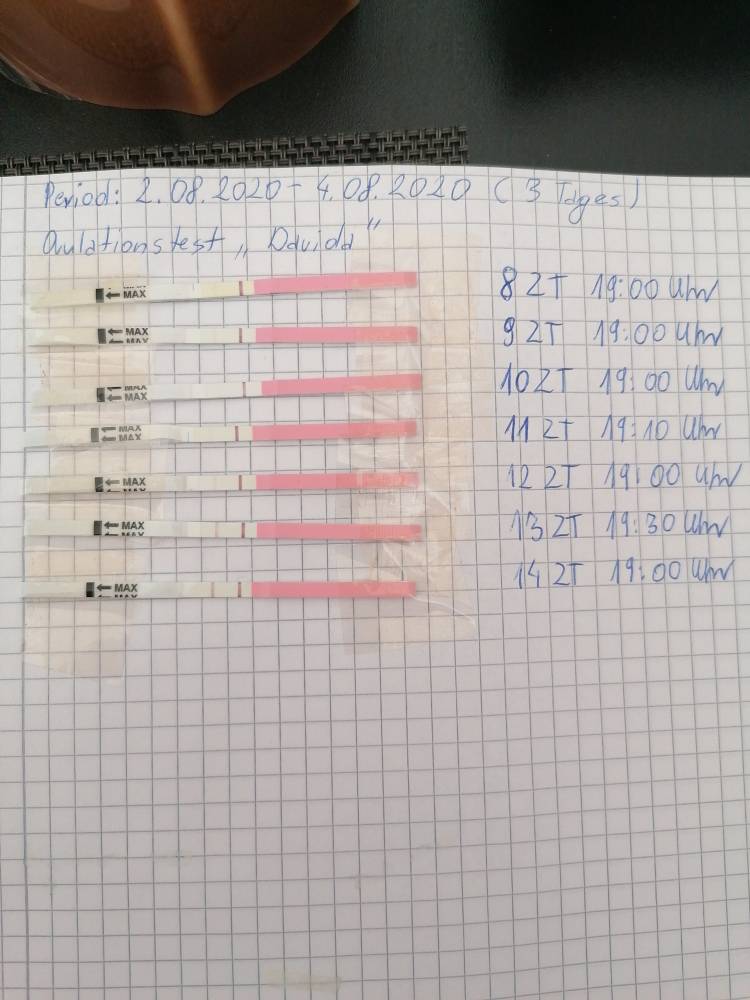 Period: 2.08.2020 - 4.08.2020 ( 3 Tages)
Ovulationstest „ David"
← MAX 8 ZT 19:00 Uhr
← MAX 9 ZT 19:00 Uhr
← MAX 10 ZT 19:00 Uhr
← MAX 11 ZT 19:10 Uhr
← MAX 12 ZT 19:00 Uhr
← MAX 13 ZT 19:30 Uhr
← MAX 14 ZT 19:00 Uhr